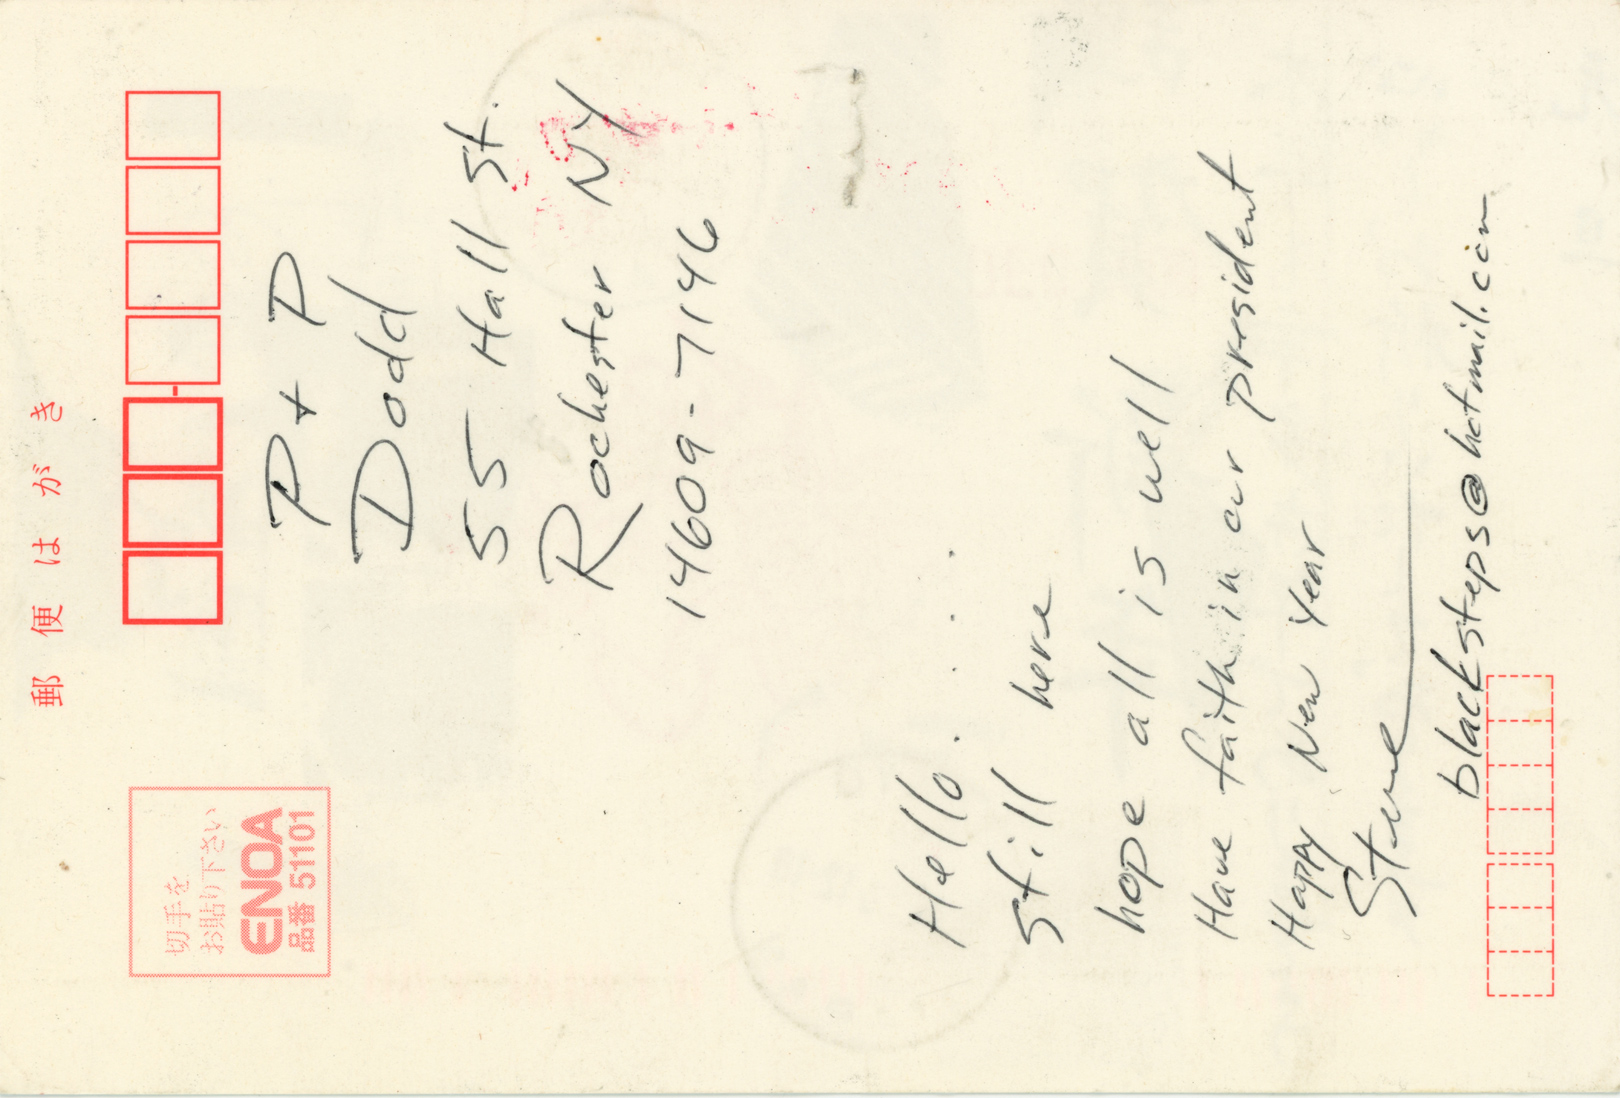 郵便はがき
切手を
お貼り下さい
ENOA
品番 51101
P + P
Dodd
55 Hall St.
Rochester NY
14609-7146
Hello . . . .
still here
hope all is well
Have faith in our president
Happy New Year
Steve
blacksteps@hotmail.com